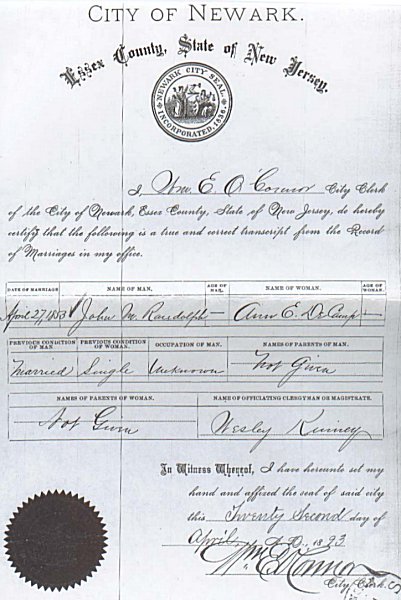 CITY OF NEWARK.
Essex County, State of New Jersey.
NEWARK CITY SEAL.
INCORPORATED, 1836.
I Wm. E. O'Connor City Clerk
of the City of Newark, Essex County, State of New Jersey, do hereby
certify that the following is a true and correct transcript from the Record
of Marriages in my office.
DATE OF MARRIAGE NAME OF MAN. AGE OF MAN. NAME OF WOMAN. AGE OF WOMAN.
April 27, 1853 John M. Randolph — Ann E. DeCamp —
PREVIOUS CONDITION OF MAN PREVIOUS CONDITION OF WOMAN. OCCUPATION OF MAN. NAMES OF PARENTS OF MAN.
Married Single Unknown Not Given
NAMES OF PARENTS OF WOMAN. NAME OF OFFICIATING CLERGYMAN OR MAGISTRATE.
Not Given Wesley Kenney
In Witness Whereof, I have hereunto set my
hand and affixed the seal of said city
this Twenty Second day of
April A. D., 1893
Wm E O'Connor
City Clerk.